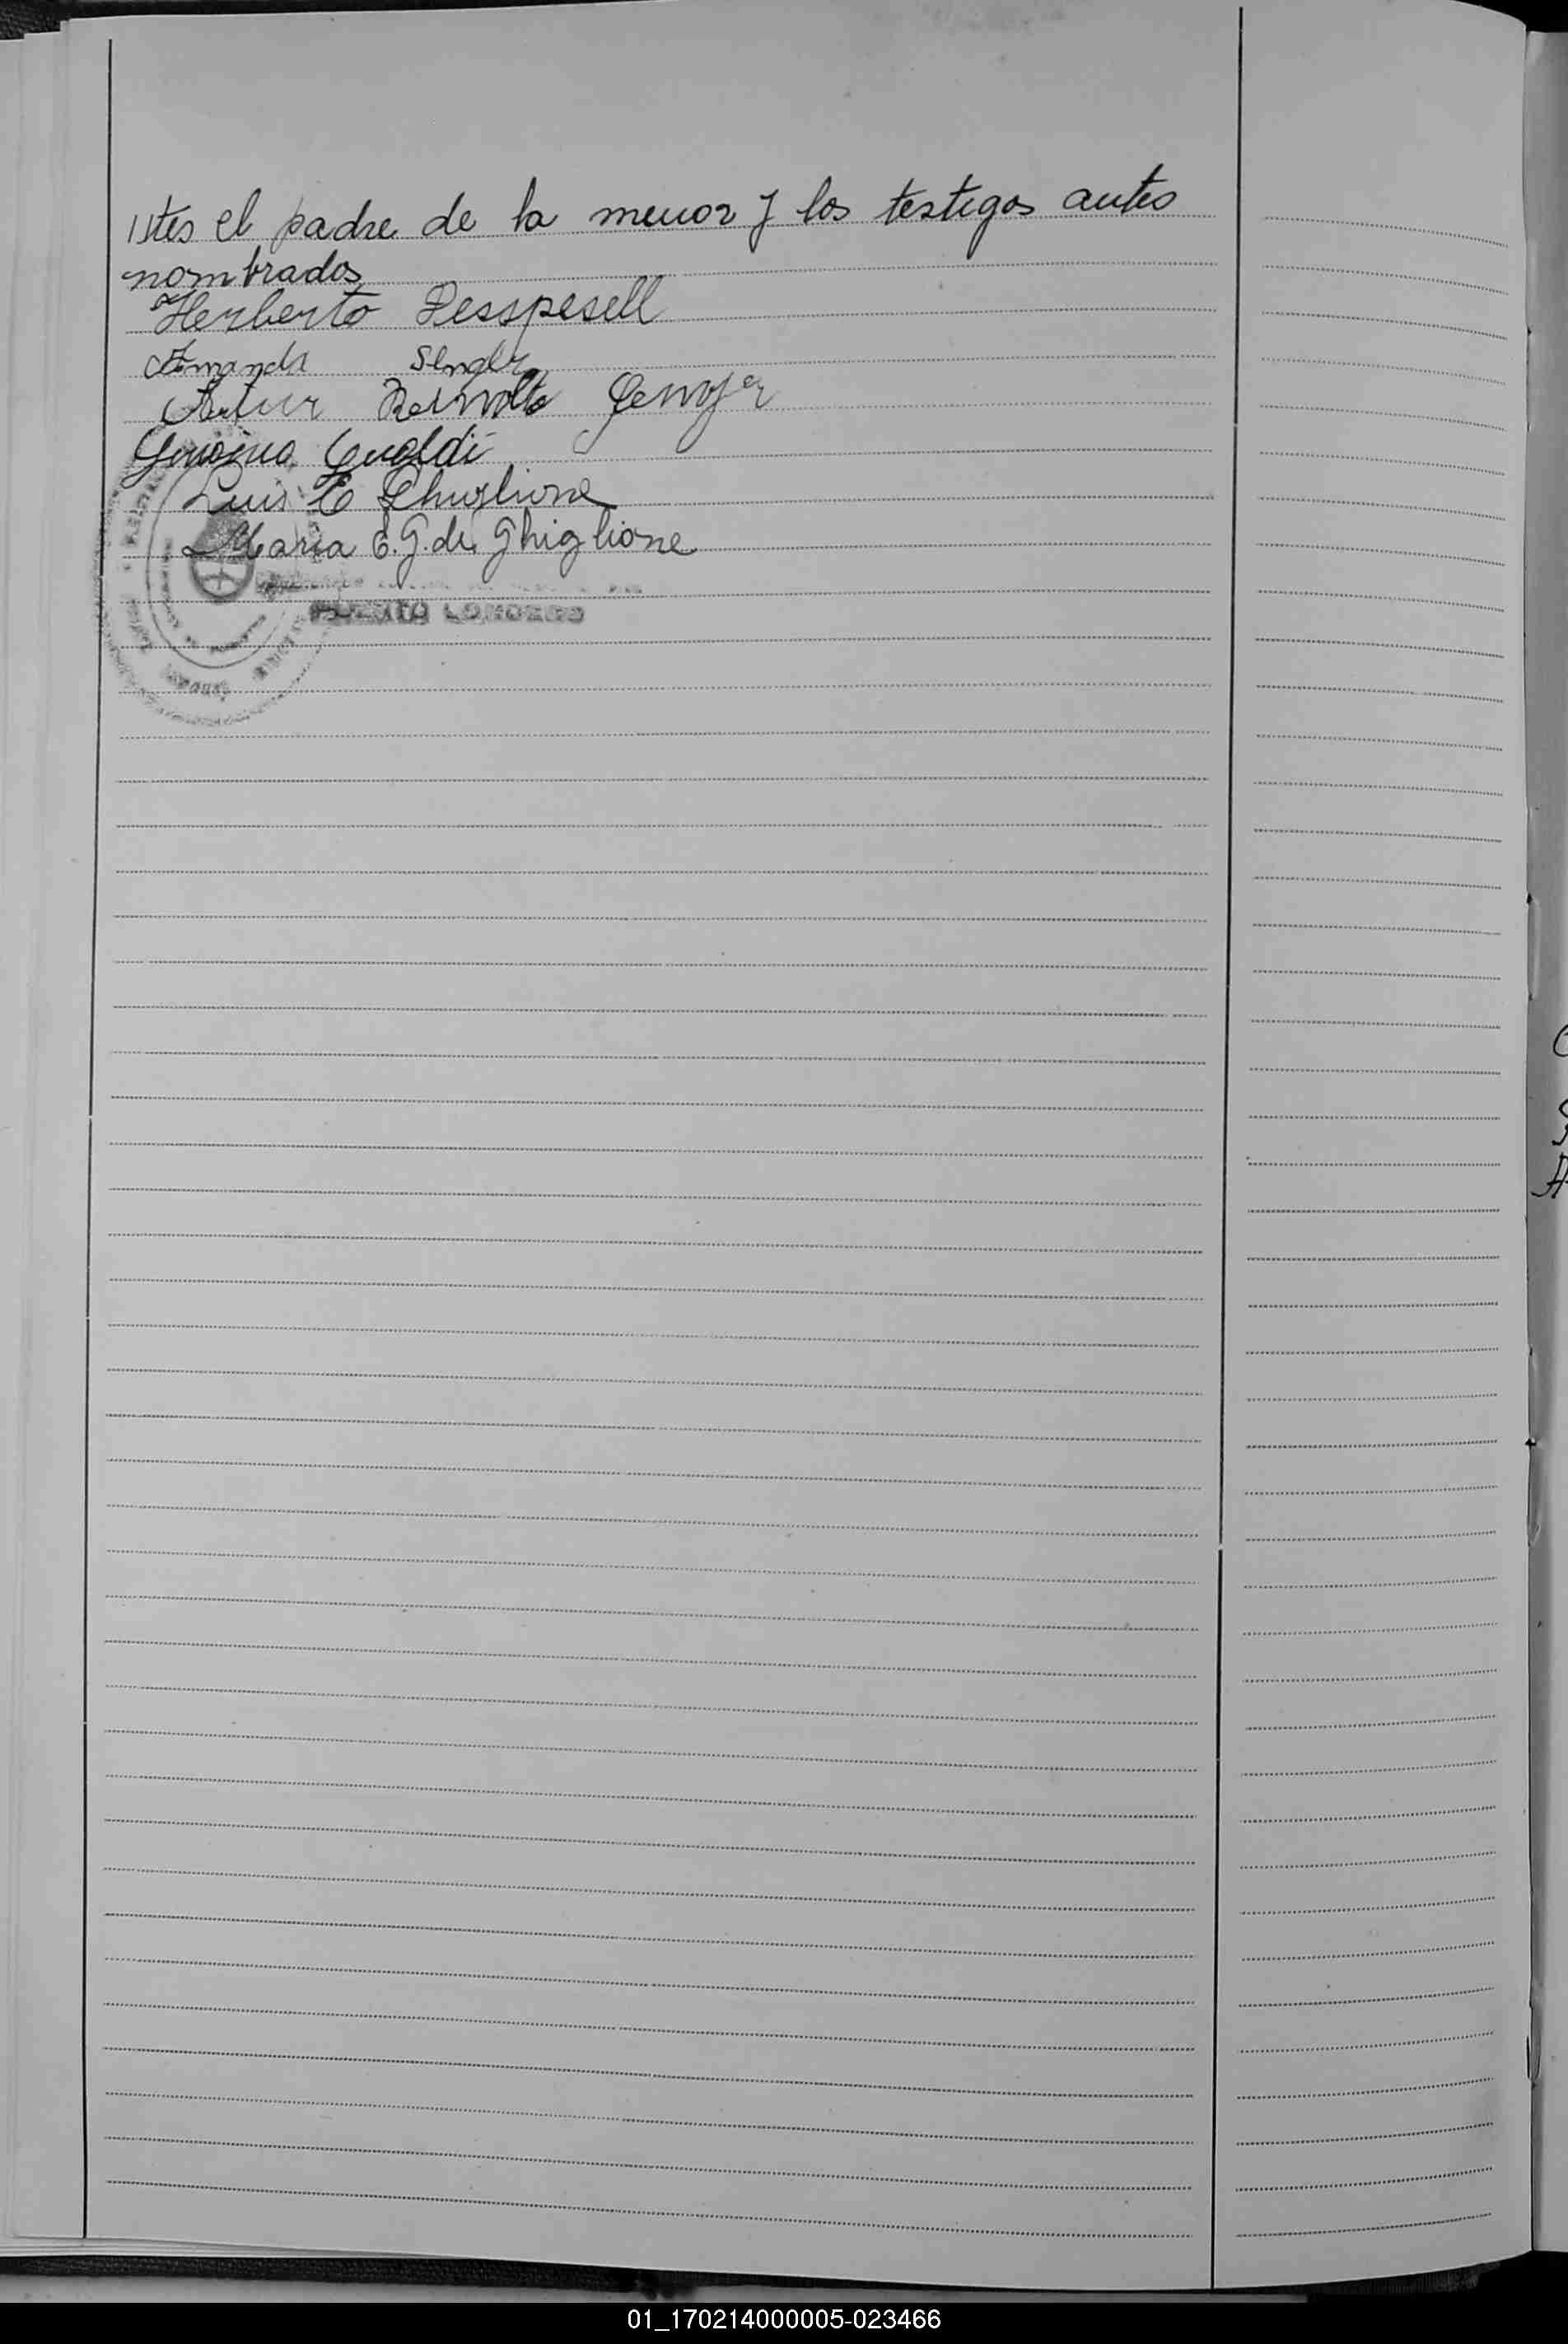 ntes el padre de la menor y los testigos antes
nombrados
Herberto Desspesell
Amanda Sengler
Artur Reinolto Senger
Luis E Ghiglione
María E. G. de Ghiglione
PUERTO LONDERO
01_170214000005-023466